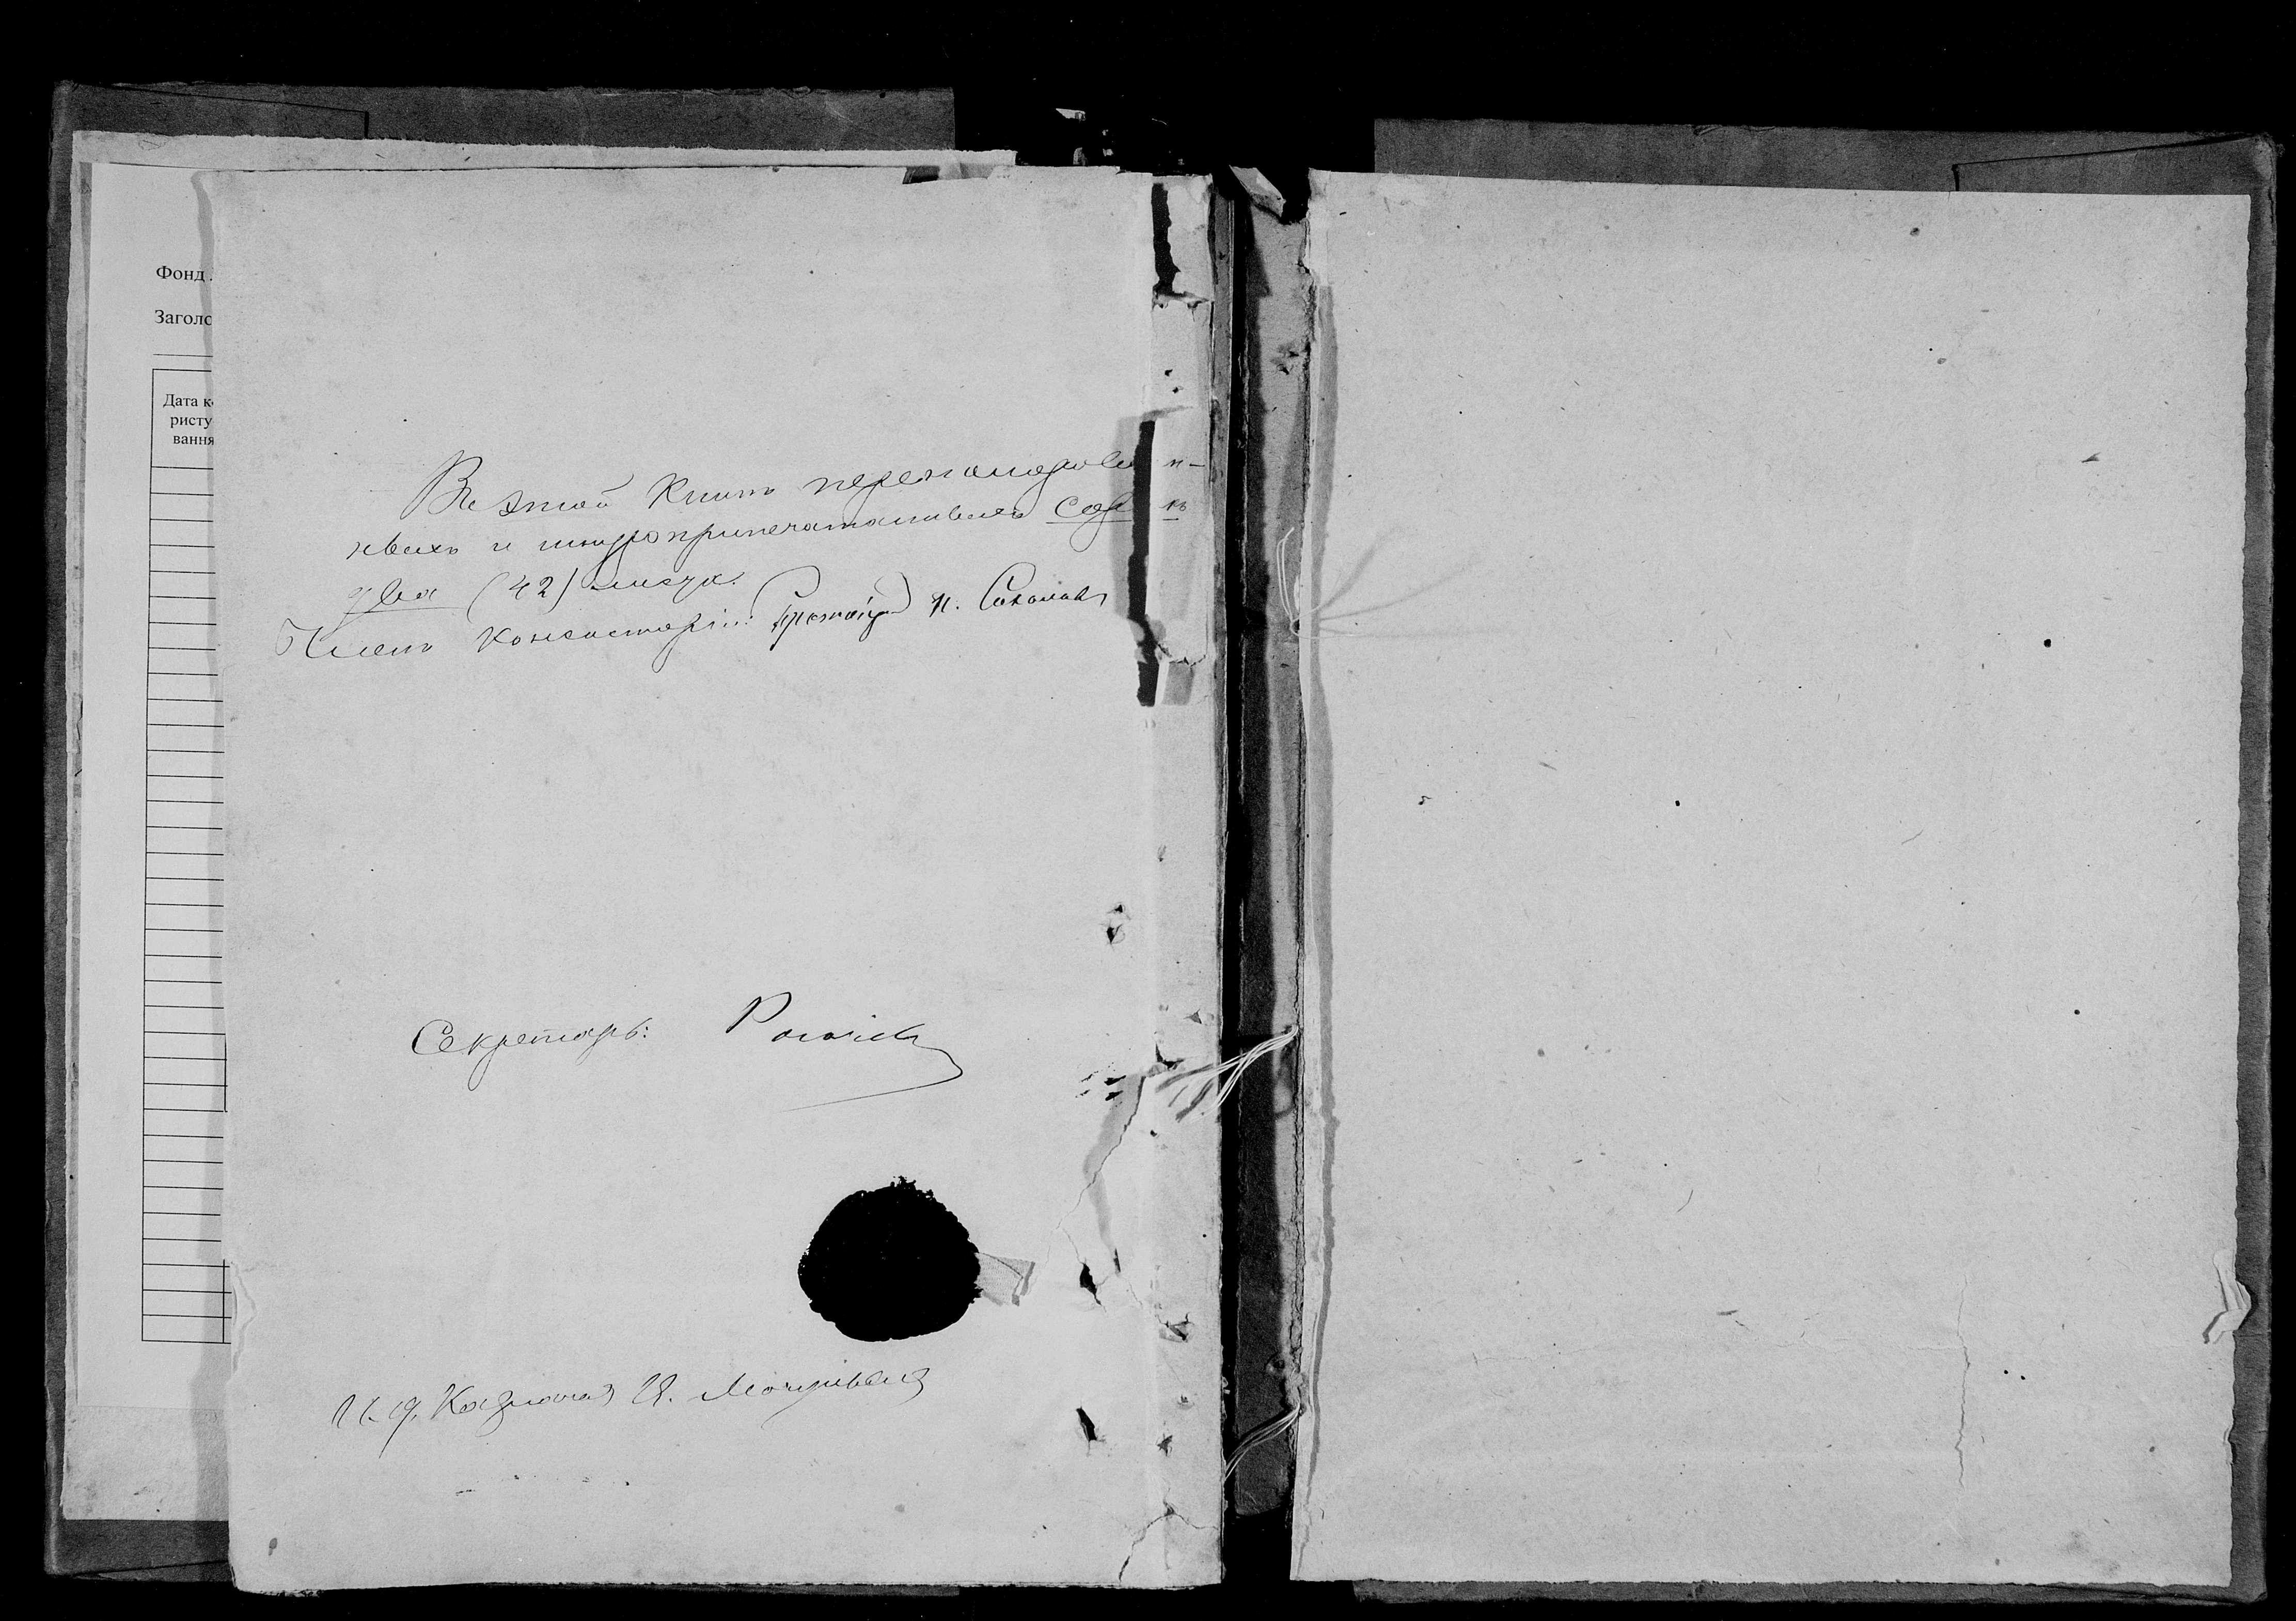 Фонд
Заголо
Дата к
ристу
вання
Въ этой Книгѣ переномерован-
ныхъ и шнуроприпечатанныхъ сорокъ
два (42) листа.
Членъ Консисторіи: Протоіерей Н. Соколовъ
Секретарь:
И. д. Казначея И.